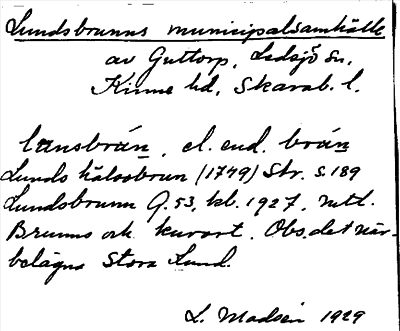 Lundsbrunns municipalsamhälle
av Guttorp, Ledsjö sn,
Kinne hd, Skarab. l.
lunsbrán, el. end. brán
Lunds hälsobrun (1749) Str. S. 189
Lundsbrunn G. 53, kb. 1927.
Brunns och kurort. Obs. det när-
belägna Stora Lund.
L. Madsén 1929